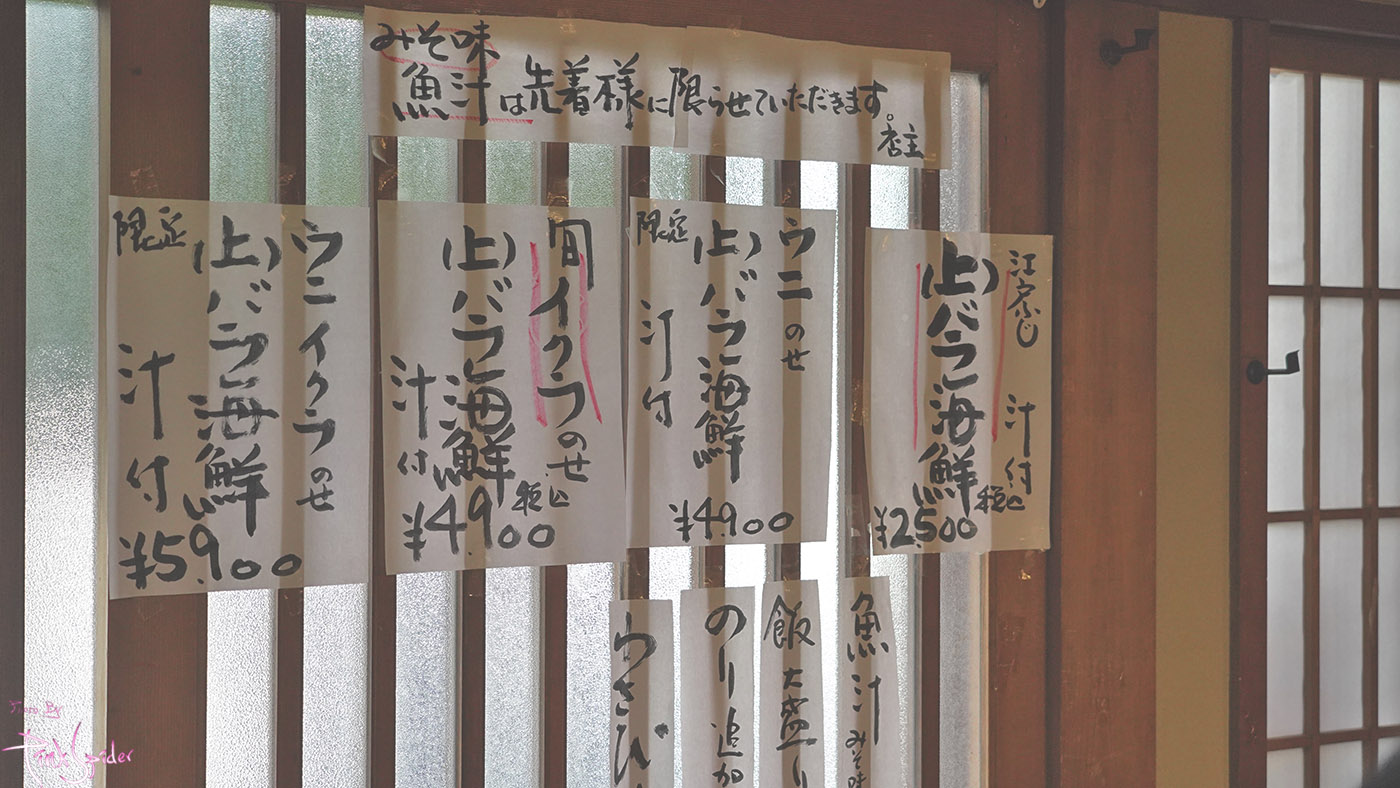 みそ味
魚汁は先着様に限らせていただきます。
店主
江戸ふじ
(上)バラこ海鮮
汁付
税込
¥2,500
ウニのせ
(上)バラこ海鮮
限定
汁付
¥4,900
旬イクラのせ
(上)バラこ海鮮
汁付
税込
¥4,900
ウニイクラのせ
(上)バラこ海鮮
限定
汁付
¥5,900
魚汁みそ味
飯大盛り
のり追加
わさび
Photo By
Pink Spider